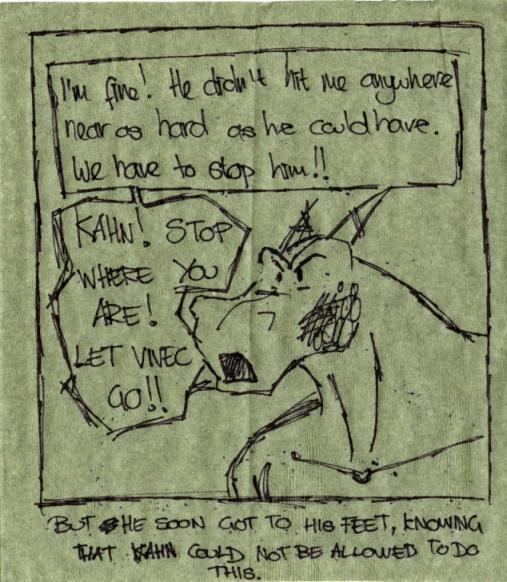 I'm fine! He didn't hit me anywhere
near as hard as he could have.
We have to stop him!!
KAHN! STOP
WHERE YOU
ARE!
LET VIVEC
GO!!
BUT HE SOON GOT TO HIS FEET, KNOWING
THAT KAHN COULD NOT BE ALLOWED TO DO
THIS.